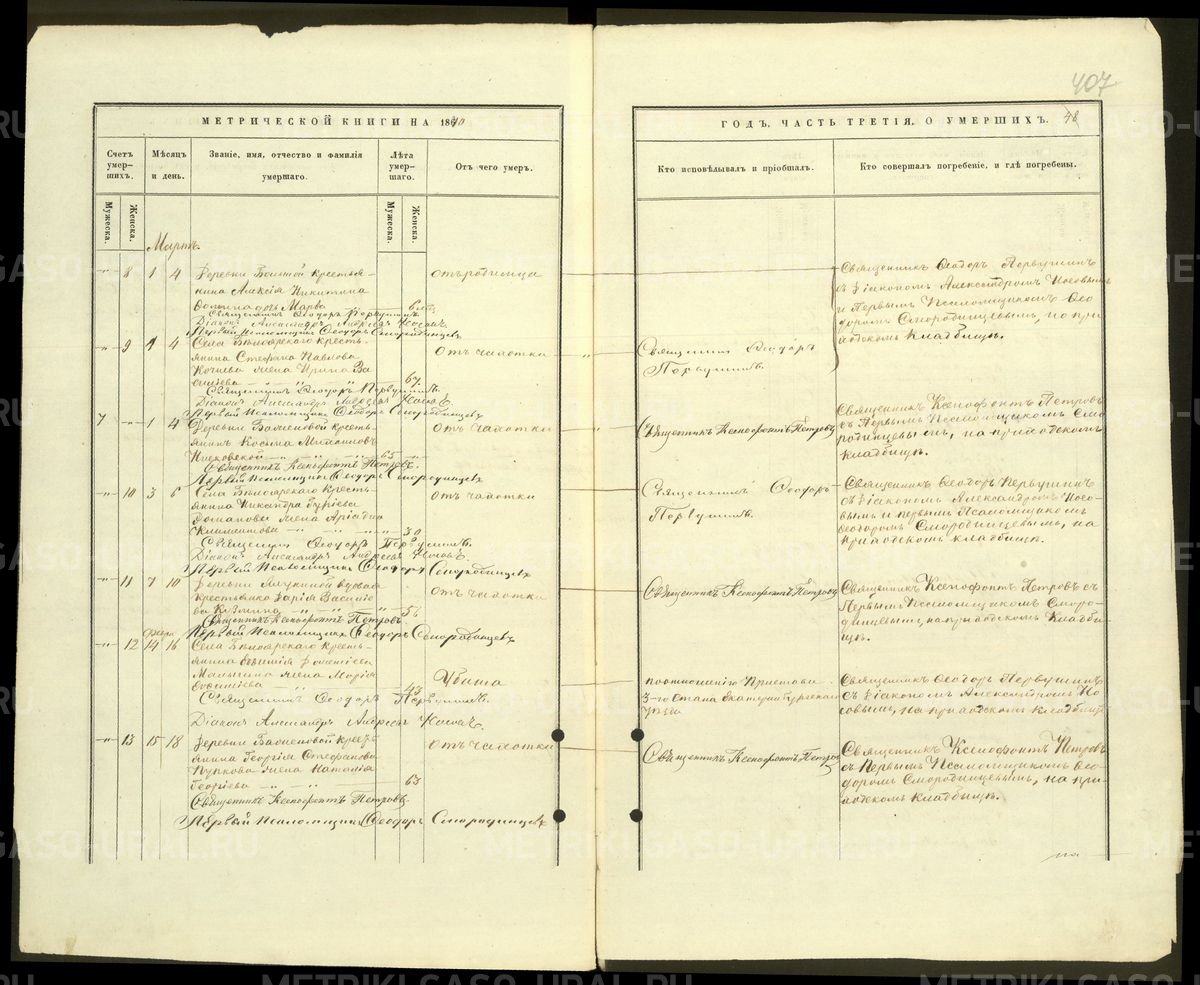 407
МЕТРИЧЕСКОЙ КНИГИ НА 1870
Счетъ умер-шихъ.
Мѣсяцъ и день.
Званіе, имя, отчество и фамилія умершаго.
Лѣта умер-шаго.
Отъ чего умеръ.
Мужеска.
Женска.
Мужеска.
Женска.
Мартъ.
" 8 1 4 Деревни крестья-
нина Алексія Никитина
дочь Марѳа
отъ родимца
Священникъ Ѳеодоръ Первушинъ.
Діаконъ Александръ Андреевъ Носовъ.
Первый Псаломщикъ Ѳеодоръ Смородинцевъ
" 9 1 4 Села Бѣлоярскаго кресть-
янина Стефана Павлова
жена Ирина Ва
сильева 67
Отъ чахотки
Священникъ Ѳеодоръ Первушинъ.
Діаконъ Александръ Андреевъ Носовъ.
Первый Псаломщикъ Ѳеодоръ Смородинцевъ
7 " 1 4 Деревни кресть-
янинъ Косьма
65 "
Отъ чахотки
Священникъ Ксенофонтъ Петровъ.
Первый Псаломщикъ Ѳеодоръ Смородинцевъ
" 10 3 6 Села Бѣлоярскаго кресть-
янина Никандра Гурьева
жена
30
Отъ чахотки
Священникъ Ѳеодоръ Первушинъ.
Діаконъ Александръ Андреевъ Носовъ.
Первый Псаломщикъ Ѳеодоръ Смородинцевъ
" 11 7 10 Деревни вдова
крестьянка Дарія Василіе
ва
Отъ чахотки
Священникъ Ксенофонтъ Петровъ
Первый Псаломщикъ Ѳеодоръ Смородинцевъ
" 12 14 16 Села Бѣлоярскаго кресть-
янина
Малыгина жена Марія
Убита
Священникъ Ѳеодоръ Первушинъ.
Діаконъ Александръ Андреевъ Носовъ.
" 13 15 18 Деревни кресть-
янина Георгія Стефанова
жена Наталія
Георгіева 63
Отъ чахотки
Священникъ Ксенофонтъ Петровъ
Первый Псаломщикъ Ѳеодоръ Смородинцевъ
ГОДЪ. ЧАСТЬ ТРЕТІЯ, О УМЕРШИХЪ. 48
Кто исповѣдывалъ и пріобщалъ.
Кто совершалъ погребеніе, и гдѣ погребены.
Священникъ Ѳеодоръ Первушинъ
съ Діакономъ Александромъ Носовымъ
и Первымъ Псаломщикомъ Ѳео
доромъ Смородинцевымъ, на при
ходскомъ кладбищѣ.
Священникъ Ѳеодоръ
Первушинъ.
Священникъ Ксенофонтъ Петровъ
Священникъ Ксенофонтъ Петровъ
съ Первымъ Псаломщикомъ Смо
родинцевымъ, на приходскомъ
кладбищѣ.
Священникъ Ѳеодоръ
Первушинъ.
Священникъ Ѳеодоръ Первушинъ
съ Діакономъ Александромъ Носо
вымъ и первымъ Псаломщикомъ
Ѳеодоромъ Смородинцевымъ, на
приходскомъ кладбищѣ.
Священникъ Ксенофонтъ Петровъ
Священникъ Ксенофонтъ Петровъ съ
Первымъ Псаломщикомъ Сморо-
динцевымъ, на приходскомъ кладби-
щѣ.
по отношенію Пристава
3-го Стана Екатеринбургскаго
Уѣзда
Священникъ Ѳеодоръ Первушинъ
съ Діакономъ Александромъ Но
совымъ, на приходскомъ кладбищѣ
Священникъ Ксенофонтъ Петровъ
Священникъ Ксенофонтъ Петровъ
съ Первымъ Псаломщикомъ Ѳео
доромъ Смородинцевымъ, на при-
ходскомъ кладбищѣ.
METRIKI.GASO-URAL.RU